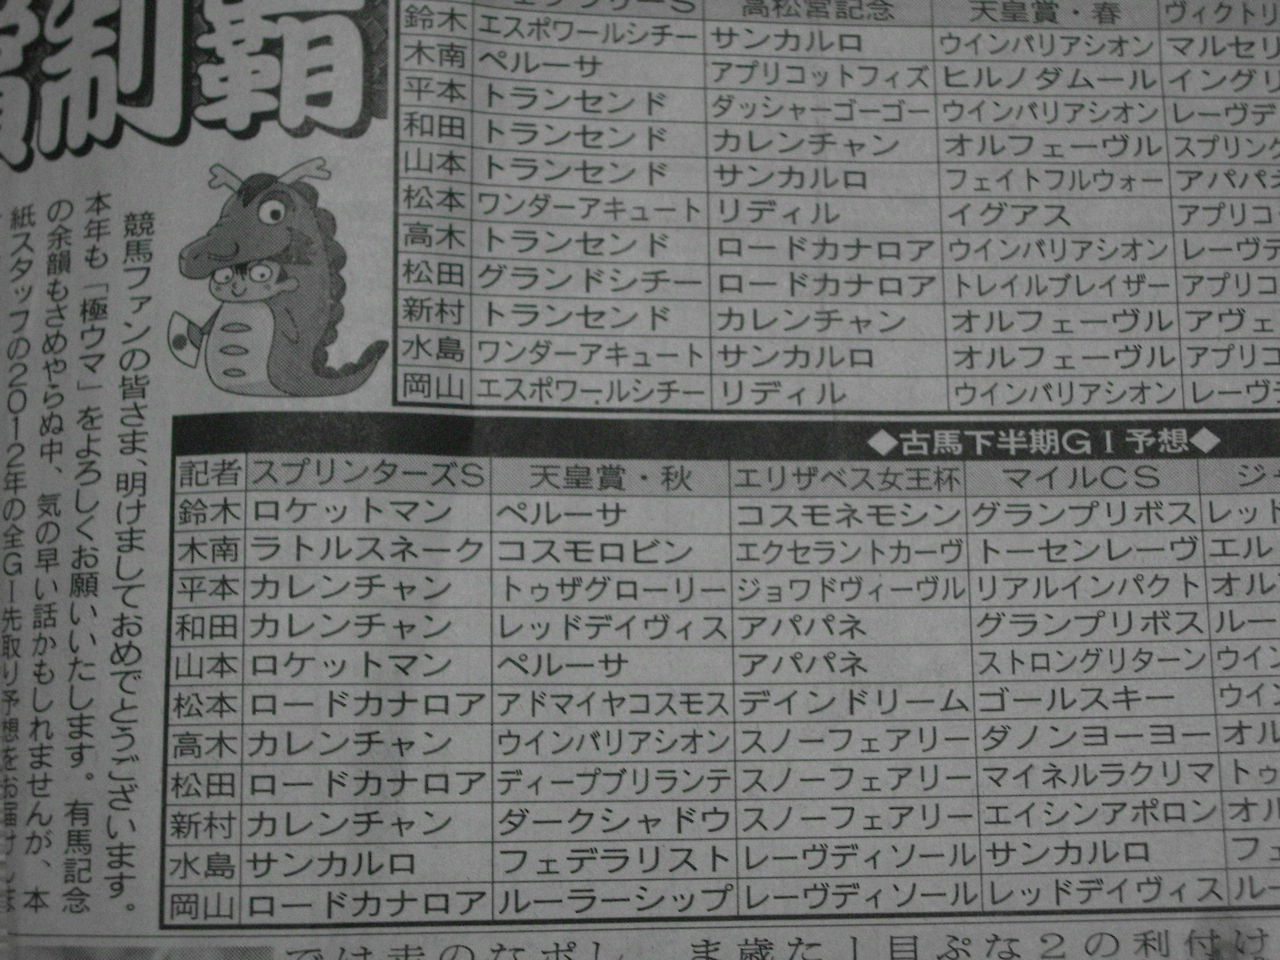 制覇
高松宮記念 天皇賞・春 ヴィクトリ
鈴木 エスポワールシチー サンカルロ ウインバリアシオン マルセリ
木南 ペルーサ アプリコットフィズ ヒルノダムール イングリ
平本 トランセンド ダッシャーゴーゴー ウインバリアシオン レーヴデ
和田 トランセンド カレンチャン オルフェーヴル スプリング
山本 トランセンド サンカルロ フェイトフルウォー アパパネ
松本 ワンダーアキュート リディル イグアス アプリコ
高木 トランセンド ロードカナロア ウインバリアシオン レーヴデ
松田 グランドシチー ロードカナロア トレイルブレイザー アプリコ
新村 トランセンド カレンチャン オルフェーヴル アヴェ
水島 ワンダーアキュート サンカルロ オルフェーヴル アプリコ
岡山 エスポワールシチー リディル ウインバリアシオン レーヴ
競馬ファンの皆さま、明けましておめでとうございます。
本年も「極ウマ」をよろしくお願いいたします。有馬記念
の余韻もさめやらぬ中、気の早い話かもしれませんが、本
紙スタッフの2012年の全GI先取り予想をお届けしま
◆古馬下半期GI予想◆
記者 スプリンターズS 天皇賞・秋 エリザベス女王杯 マイルCS ジ
鈴木 ロケットマン ペルーサ コスモネモシン グランプリボス レッド
木南 ラトルスネーク コスモロビン エクセラントカーヴ トーセンレーヴ エル
平本 カレンチャン トゥザグローリー ジョワドヴィーヴル リアルインパクト オル
和田 カレンチャン レッドデイヴィス アパパネ グランプリボス ルー
山本 ロケットマン ペルーサ アパパネ ストロングリターン ウイン
松本 ロードカナロア アドマイヤコスモス デインドリーム ゴールスキー ウイン
高木 カレンチャン ウインバリアシオン スノーフェアリー ダノンヨーヨー オル
松田 ロードカナロア ディープブリランテ スノーフェアリー マイネルラクリマ トゥ
新村 カレンチャン ダークシャドウ スノーフェアリー エイシンアポロン オル
水島 サンカルロ フェデラリスト レーヴディソール サンカルロ フェ
岡山 ロードカナロア ルーラーシップ レーヴディソール レッドデイヴィス ルー